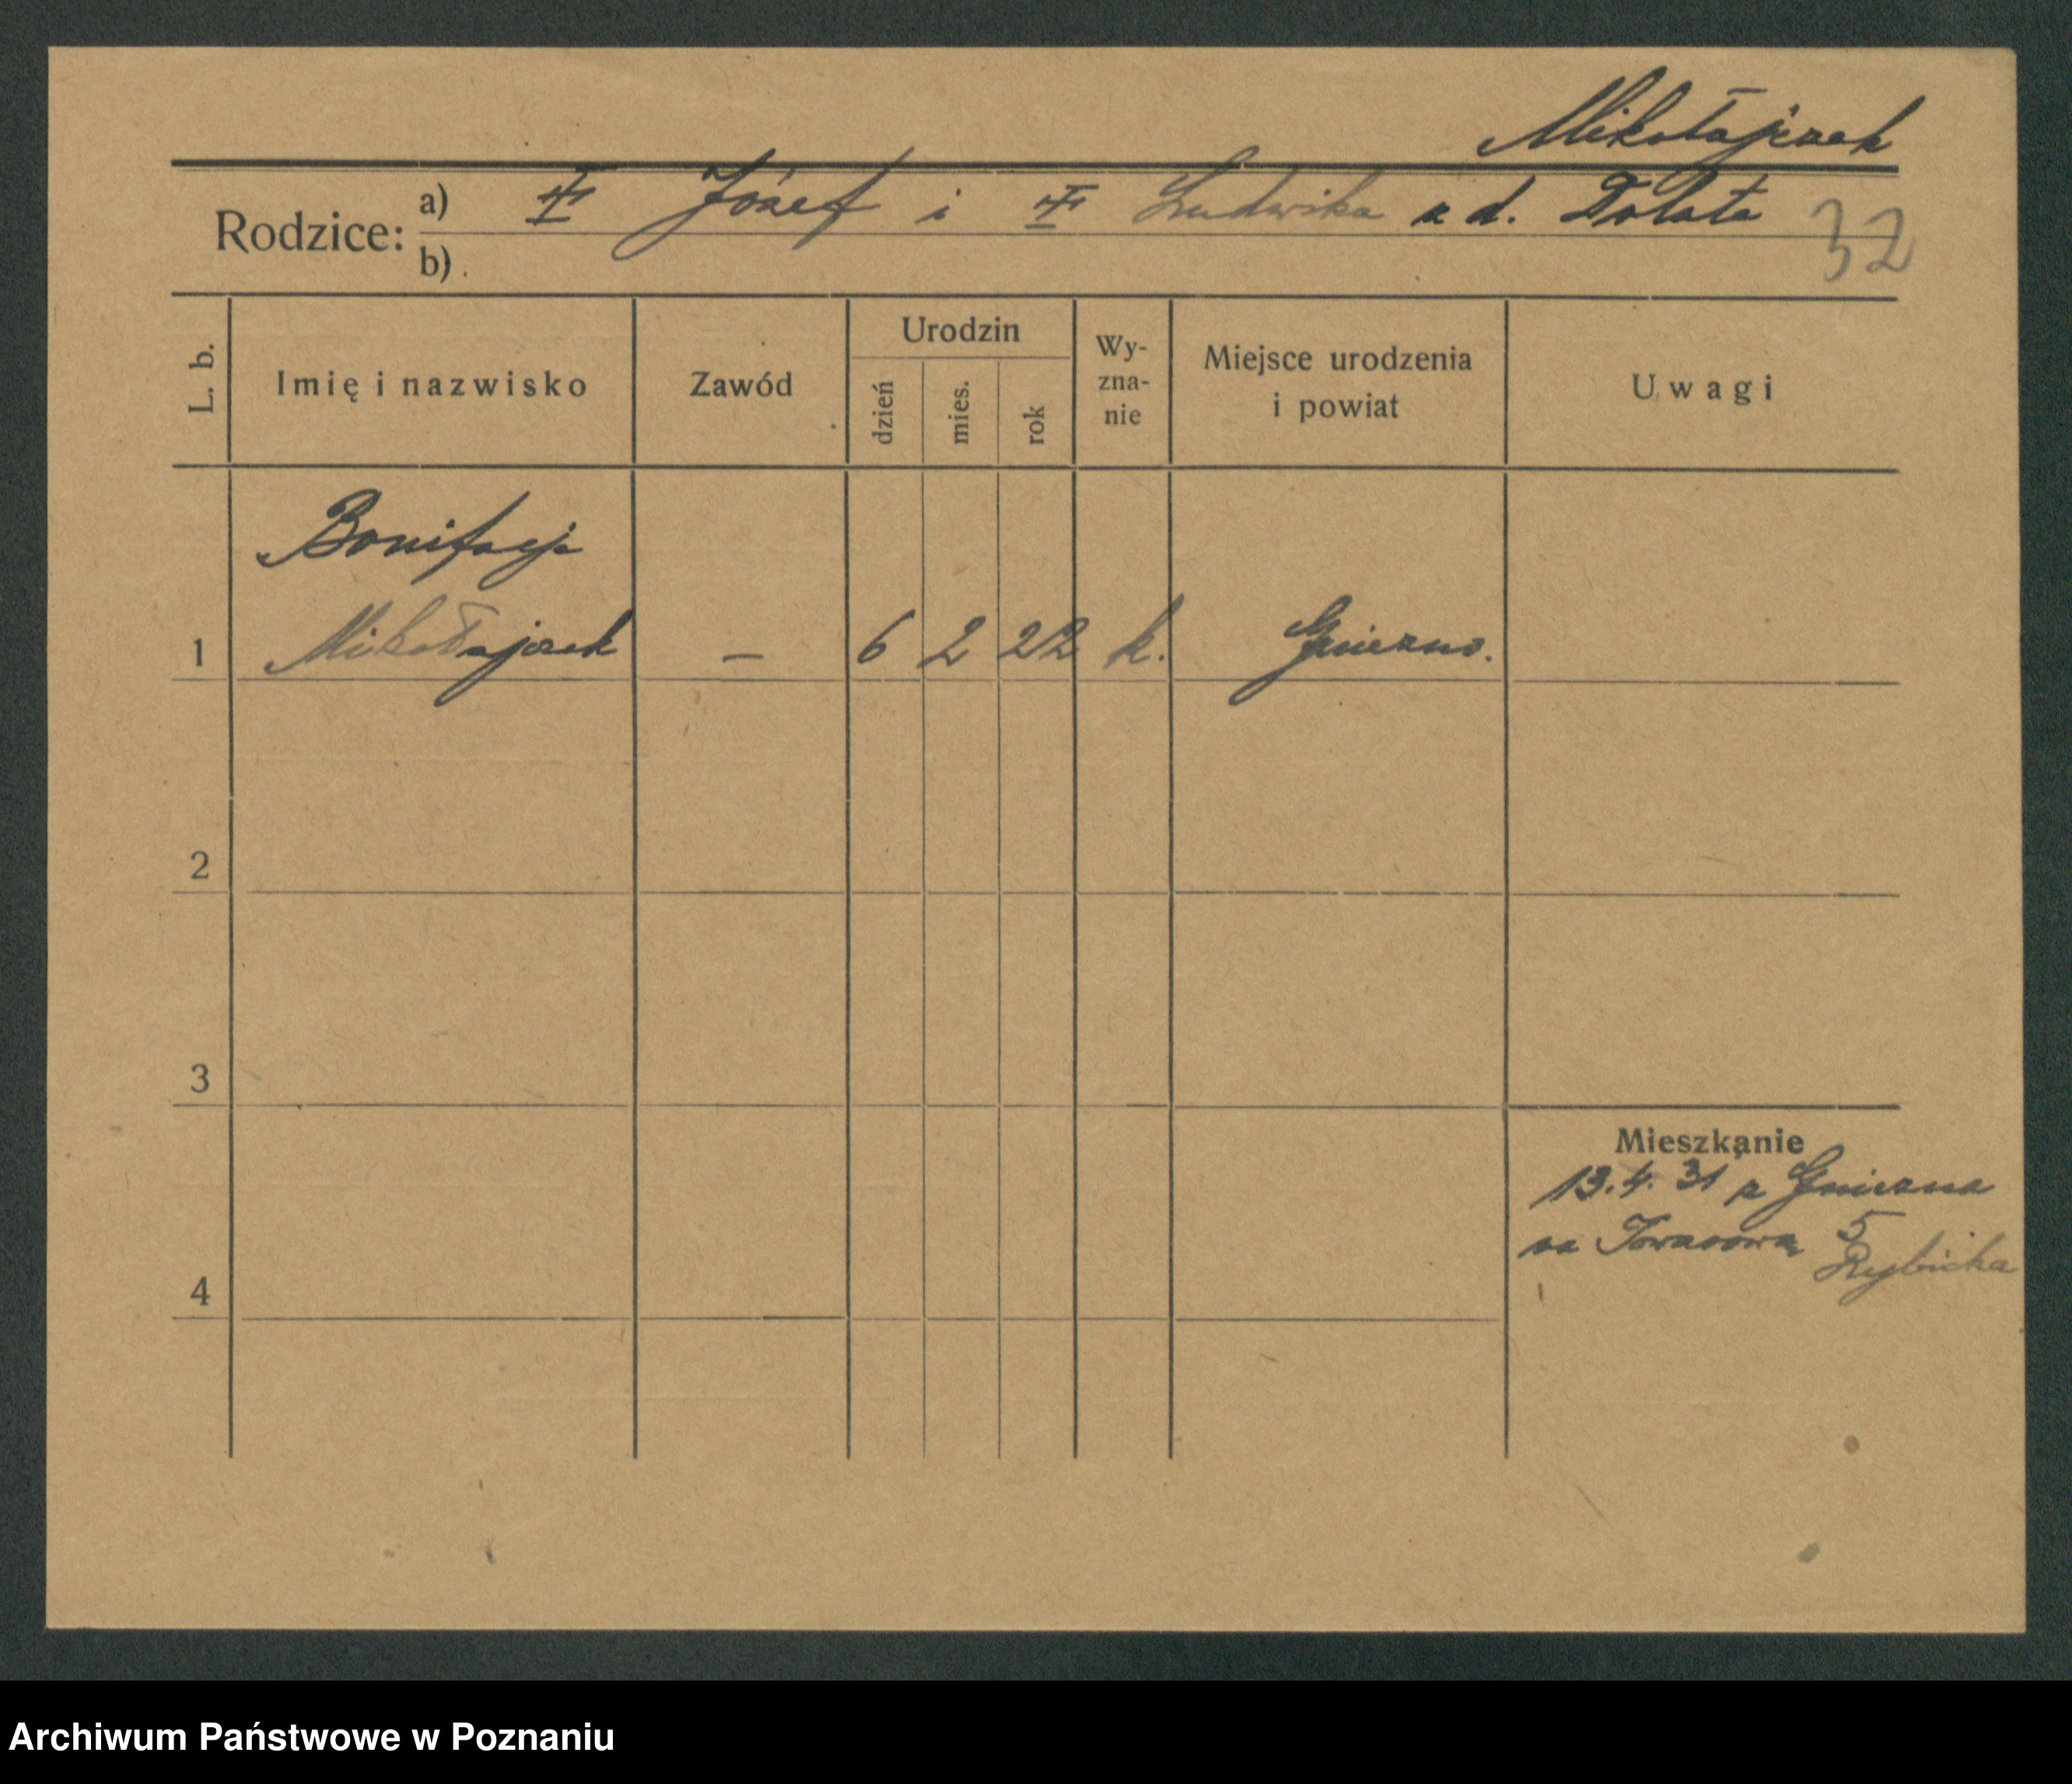 Mikołajczak
Rodzice: a) Józef i Ludwika z d. Dolata
b)
32
L. b.
Imię i nazwisko
Zawód
Urodzin
dzień
mies.
rok
Wy-
zna-
nie
Miejsce urodzenia
i powiat
Uwagi
Bonifacja
1 Mikołajczak – 6 2 22 k. Gniezno.
2
3
4
Mieszkanie
13.4.31 z Gniezna
na 5
Rybicka
Archiwum Państwowe w Poznaniu